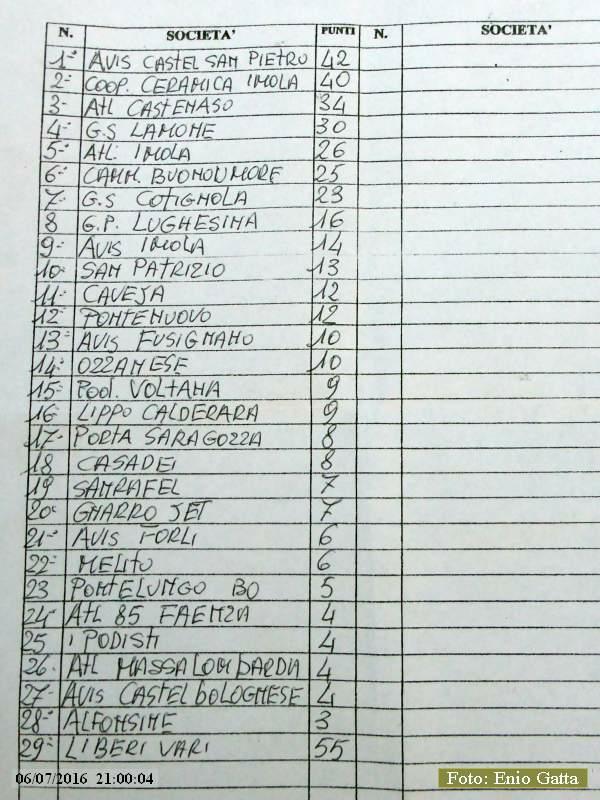 N. SOCIETA' PUNTI N. SOCIETA'
1° AVIS CASTEL SAN PIETRO 42
2° COOP. CERAMICA IMOLA 40
3° Atl CASTENASO 34
4° G.S LAMONE 30
5° Atl. IMOLA 26
6° CAMM. BUONOUMORE 25
7° G.S COTIGNOLA 23
8 G.P. LUGHESINA 16
9° AVIS IMOLA 14
10° SAN PATRIZIO 13
11° CAVEJA 12
12° PONTENUOVO 12
13° AVIS FUSIGNANO 10
14° OZZANESE 10
15° Pod. VOLTANA 9
16° LIPPO CALDERARA 9
17° PORTA SARAGOZZA 8
18 CASADEI 8
19 SANRAFEL 7
20° GNARRO JET 7
21° AVIS FORLI 6
22° MELITO 6
23 PONTELUNGO BO 5
24° Atl 85 FAENZA 4
25 i PODISTI 4
26° Atl MASSA LOMBARDA 4
27° AVIS CASTEL bOLOGNESE 4
28° ALFONSINE 3
29° LIBERI VARI 55
06/07/2016 21:00:04
Foto: Enio Gatta